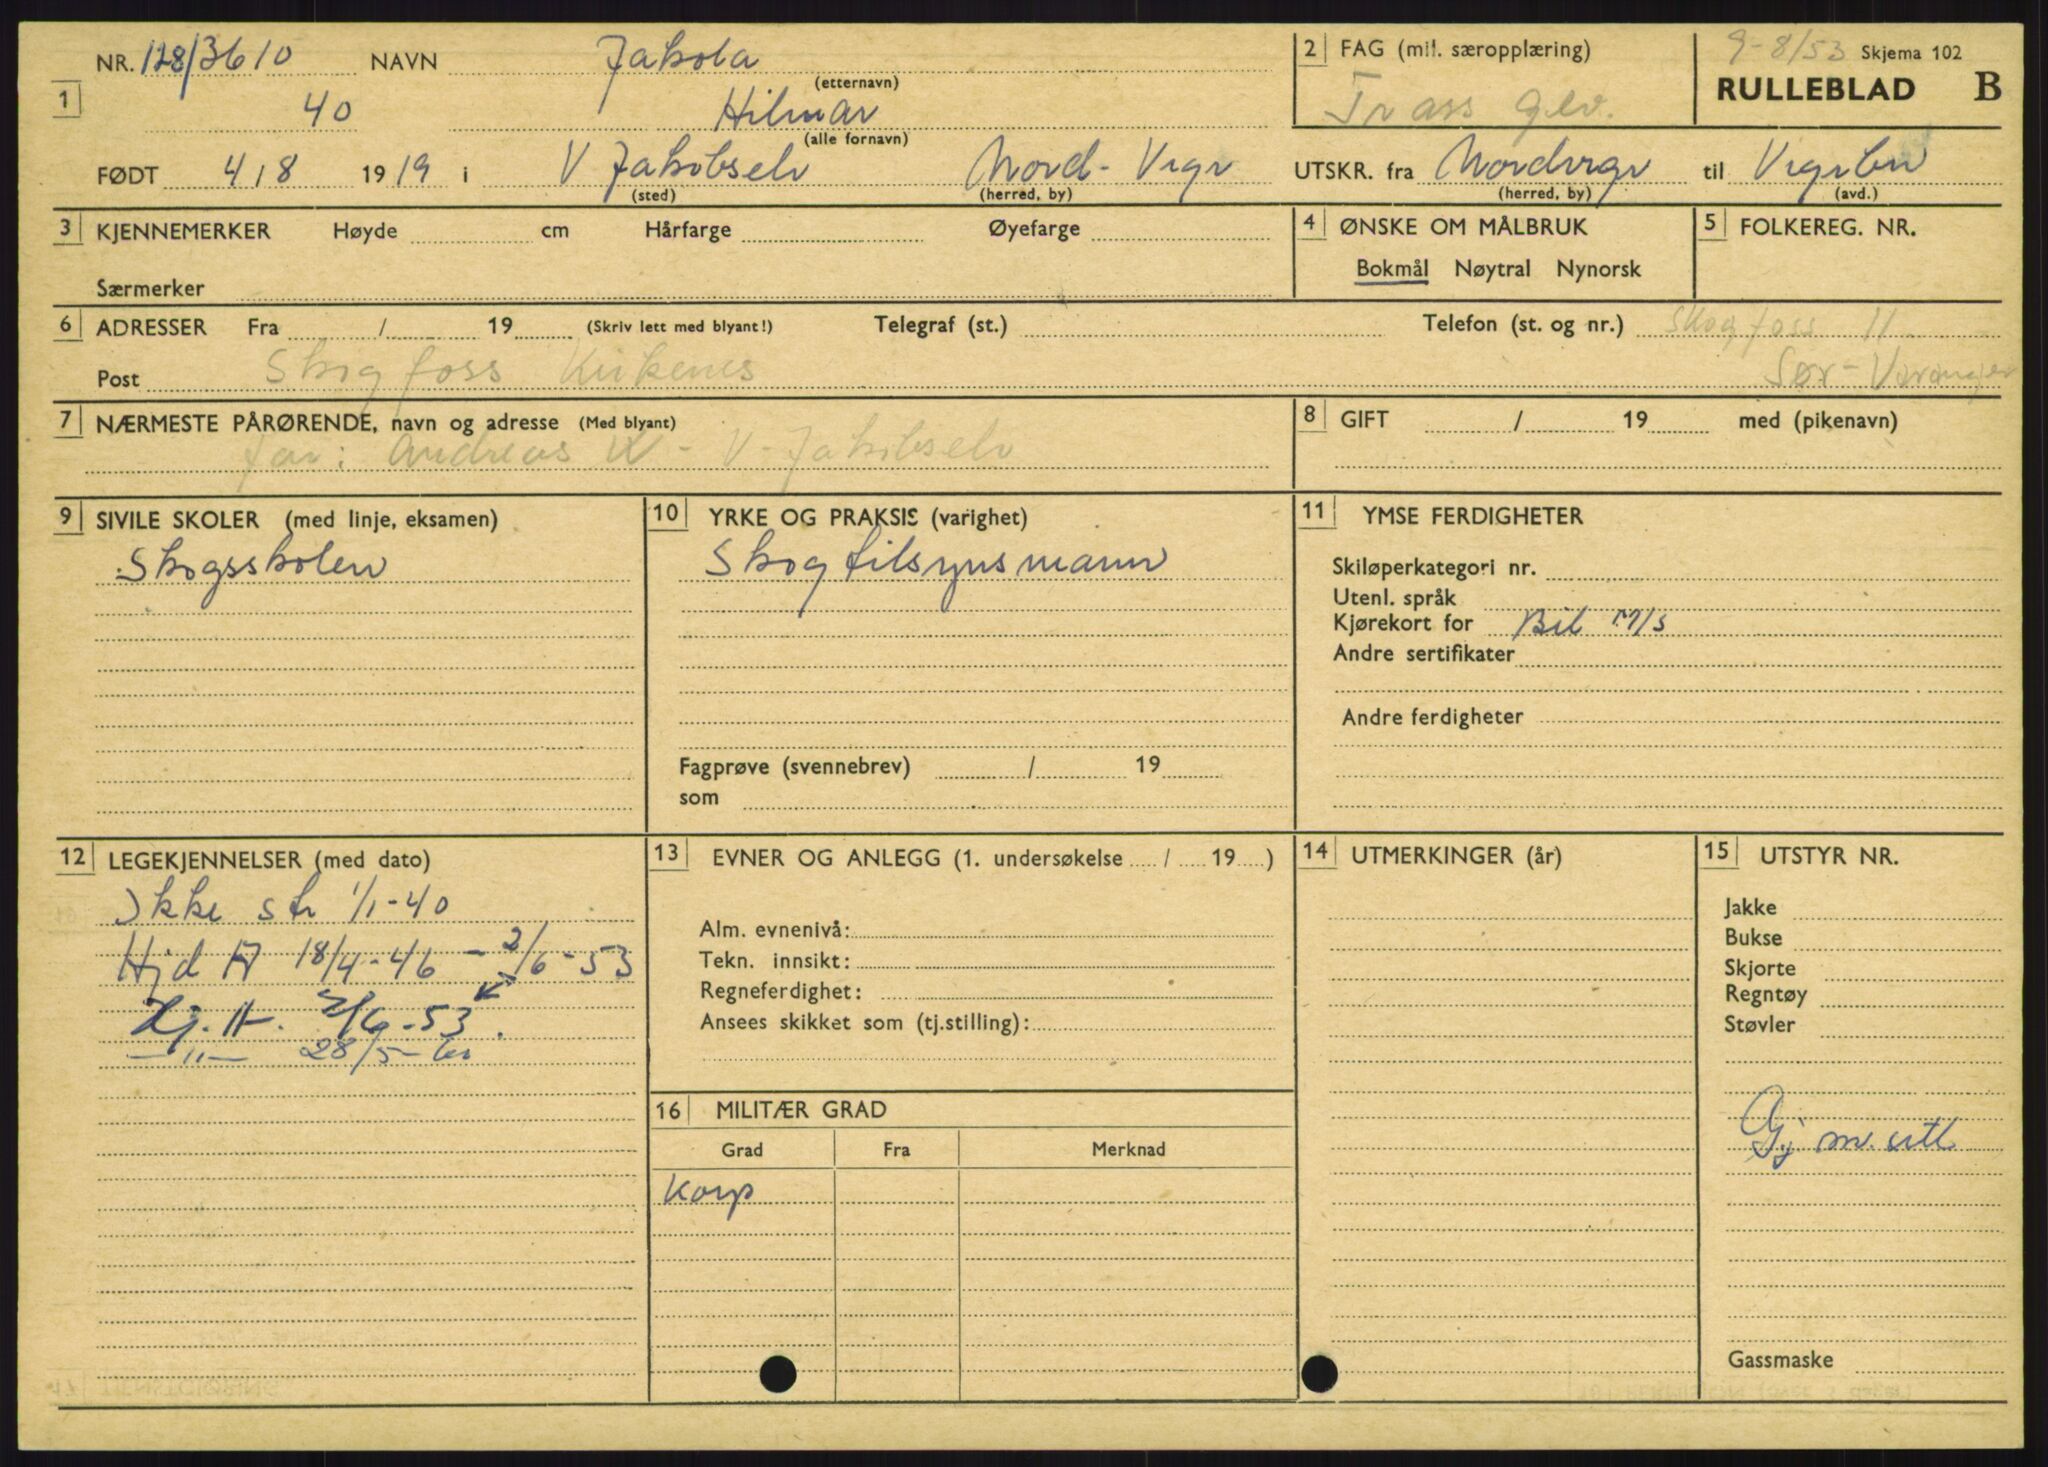 NR. 128/3610 NAVN Jakola
(etternavn)
1 40 Hilmar
(alle fornavn)
FØDT 4/8 1919 i V Jakobselv Nord-Vrgr
(sted) (herred, by)
2 FAG (mil. særopplæring)
Trass gev.
9-8/53 Skjema 102
RULLEBLAD B
UTSKR. fra Nordvrgr til Vrgrbn
(herred, by) (avd.)
3 KJENNEMERKER Høyde cm Hårfarge Øyefarge
Særmerker
4 ØNSKE OM MÅLBRUK
Bokmål Nøytral Nynorsk
5 FOLKEREG. NR.
6 ADRESSER Fra / 19 (Skriv lett med blyant!) Telegraf (st.) Telefon (st. og nr.) Skogfoss 11
Post Skogfoss Kirkenes Sør-Varanger
7 NÆRMESTE PÅRØRENDE, navn og adresse (Med blyant)
far: Andreas - V-Jakobselv
8 GIFT / 19 med (pikenavn)
9 SIVILE SKOLER (med linje, eksamen)
Skogsskolen
10 YRKE OG PRAKSIS (varighet)
Skogtilsynsmann
Fagprøve (svennebrev) / 19
som
11 YMSE FERDIGHETER
Skiløperkategori nr.
Utenl. språk
Kjørekort for Bil M/S
Andre sertifikater
Andre ferdigheter
12 LEGEKJENNELSER (med dato)
Ikke str 1/1-40
Hjd A 18/4-46 - 2/6-53
Hj. A. 2/6-53.
—"— 28/5-
13 EVNER OG ANLEGG (1. undersøkelse / 19 )
Alm. evnenivå:
Tekn. innsikt:
Regneferdighet:
Ansees skikket som (tj.stilling):
14 UTMERKINGER (år)
15 UTSTYR NR.
Jakke
Bukse
Skjorte
Regntøy
Støvler
Gj m. utl
Gassmaske
16 MILITÆR GRAD
Grad Fra Merknad
Korp